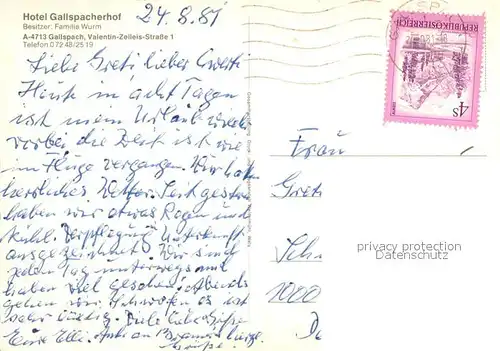 Hotel Gallspacherhof
Besitzer: Familie Wurm
A-4713 Gallspach, Valentin-Zelleis-Straße 1
Telefon 0 72 48/25 19
24.8.81
Liebe Greti, lieber
Heute in acht Tagen
ist mein Urlaub
vorbei die Zeit ist wie
im Fluge vergangen. Wir hatten
herrliches Wetter. Seit gestern
haben wir etwas Regen und
kühl. Verpflegung Unterkunft
ausgezeichnet. Wir sind
jeden Tag unterwegs und
haben viel gesehen. Abends
gehen wir es ist
sehr Viele liebe Grüße
Eure Elli.
Grüße
REPUBLIK ÖSTERREICH
4 S
Frau
Greti
Sch
1000
privacy protection
Datenschutz